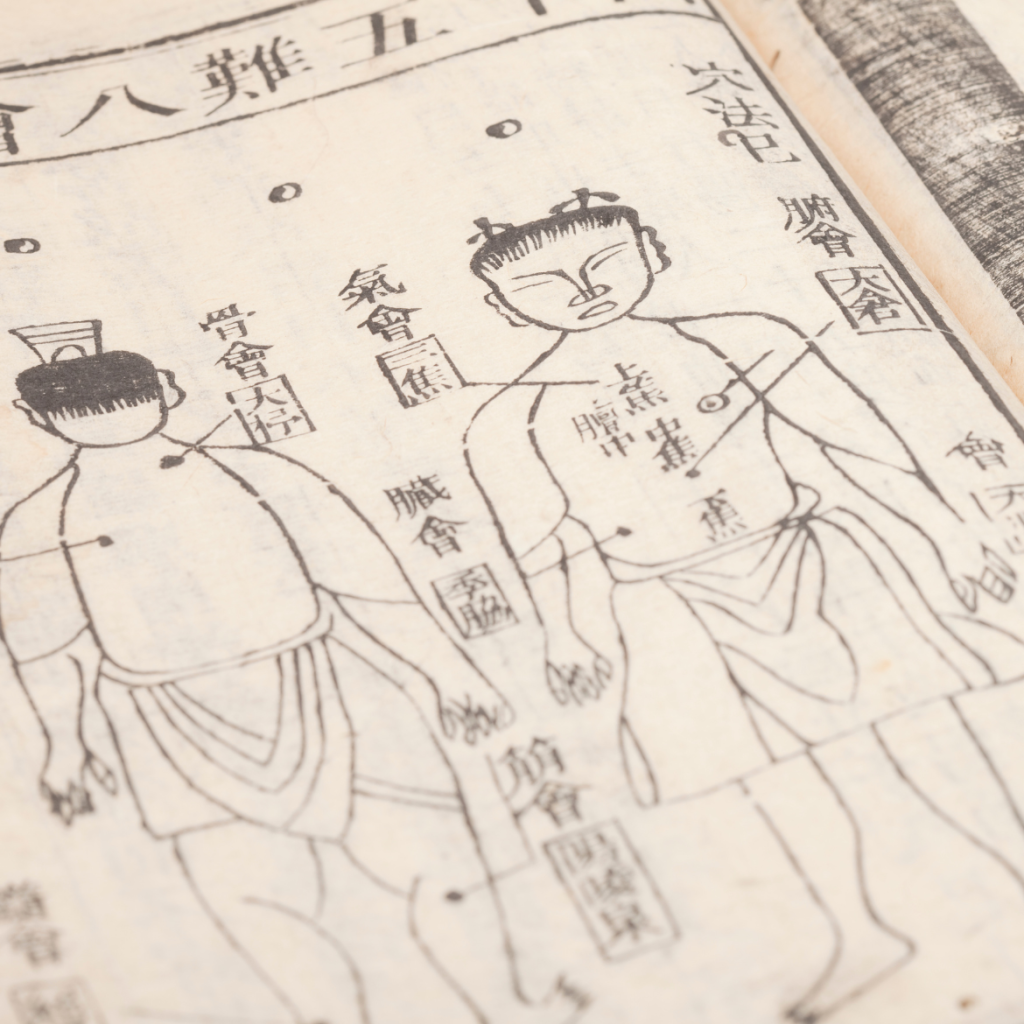 十五難八會
穴法
腑會
太倉
會
氣會
三焦
上焦
膻中
中焦
焦
骨會
大杼
臟會
季脇
筋會
陽陵泉